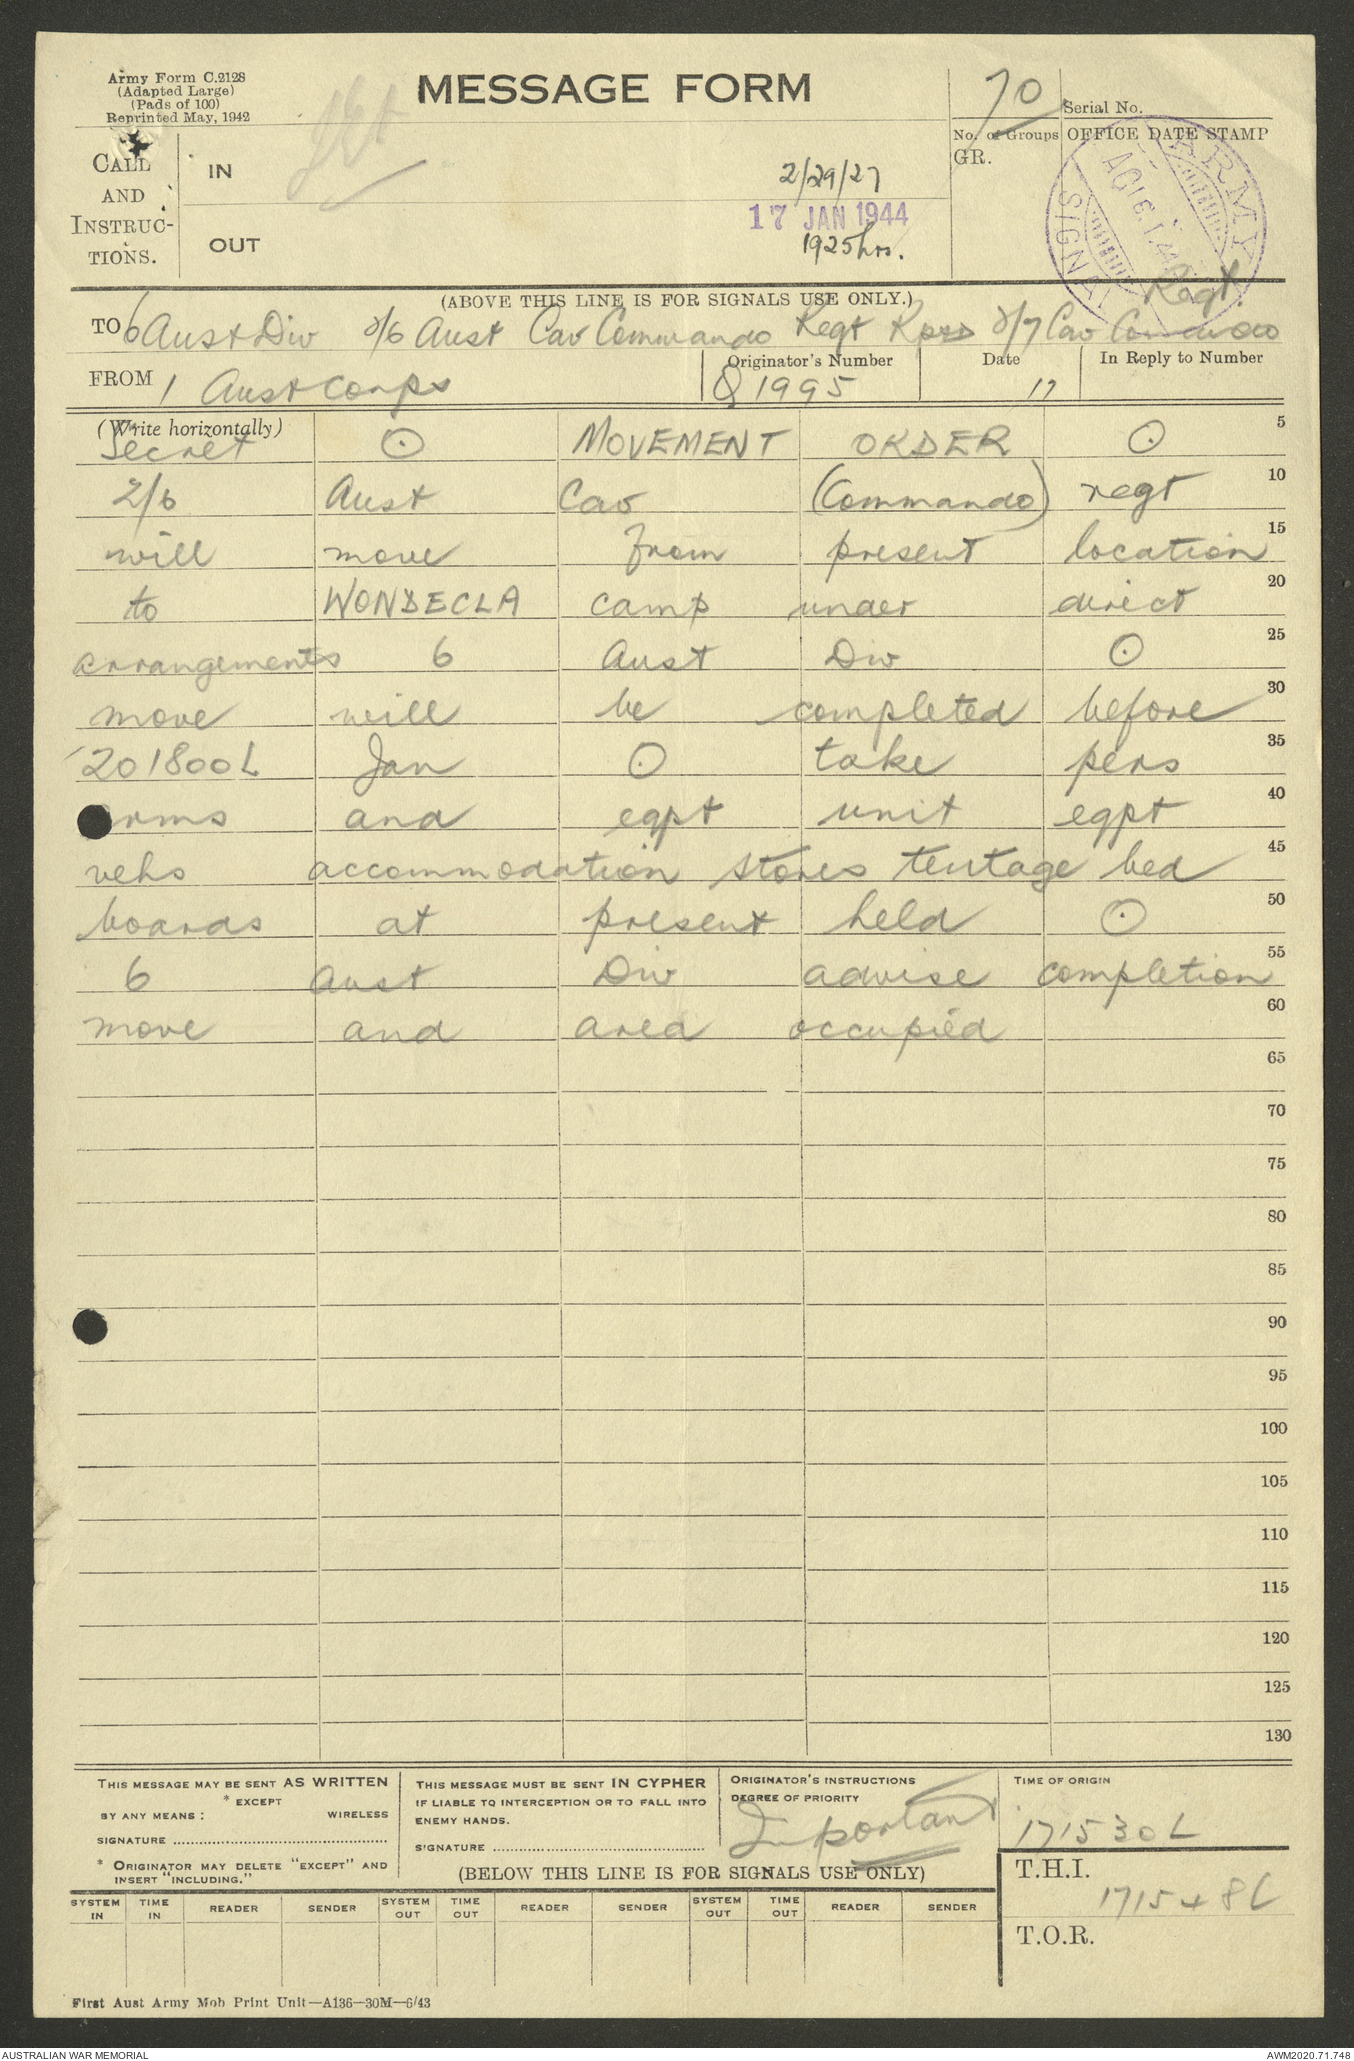 Army Form C.2128
(Adapted Large)
(Pads of 100)
Reprinted May, 1942
MESSAGE FORM
70
Serial No.
No. of Groups
GR.
OFFICE DATE STAMP
CALL
AND
INSTRUC-
TIONS.
IN
OUT
2/29/27
17 JAN 1944
1925 hrs.
ARMY
SIGNALS
(ABOVE THIS LINE IS FOR SIGNALS USE ONLY.)
Regt.
TO 6 Aust Div 2/6 Aust Cav Commando Regt 2/7 Cav Commando
FROM 1 Aust Corps
Originator's Number
Q 1995
Date
17
In Reply to Number
(Write horizontally)
Secret ⊙ MOVEMENT ORDER ⊙ 5
2/6 Aust Cav (Commando) regt 10
will move from present location 15
to WONDECLA camp under direct 20
arrangements 6 Aust Div ⊙ 25
move will be completed before 30
201800L Jan ⊙ take pers 35
arms and eqpt unit eqpt 40
vehs accommodation stores tentage bed 45
boards at present held ⊙ 50
6 Aust Div advise completion 55
move and area occupied 60
65
70
75
80
85
90
95
100
105
110
115
120
125
130
THIS MESSAGE MAY BE SENT AS WRITTEN
* EXCEPT
BY ANY MEANS : WIRELESS
SIGNATURE
* ORIGINATOR MAY DELETE "EXCEPT" AND
INSERT "INCLUDING."
THIS MESSAGE MUST BE SENT IN CYPHER
IF LIABLE TO INTERCEPTION OR TO FALL INTO
ENEMY HANDS.
SIGNATURE
ORIGINATOR'S INSTRUCTIONS
DEGREE OF PRIORITY
Important
TIME OF ORIGIN
171530L
(BELOW THIS LINE IS FOR SIGNALS USE ONLY)
T.H.I.
171548L
T.O.R.
SYSTEM IN TIME IN READER SENDER SYSTEM OUT TIME OUT READER SENDER SYSTEM OUT TIME OUT READER SENDER
First Aust Army Mob Print Unit—A136—30M—6/43
AUSTRALIAN WAR MEMORIAL
AWM2020.71.748